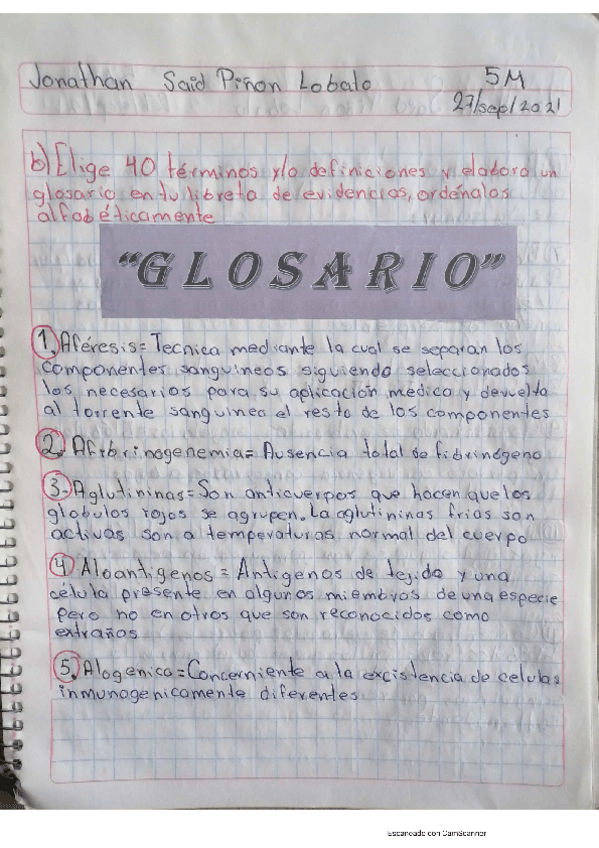 Jonathan Said Piñon Lobato 5M
27/sep/2021
b) Elige 40 términos y/o definiciones y elabora un
glosario en tu libreta de evidencias, ordénalos
alfabéticamente
"GLOSARIO"
1. Aféresis= Tecnica mediante la cual se separan los
componentes sanguineos siguiendo seleccionados
los necesarios para su aplicación médica y devuelto
al torrente sanguinea el resto de los componentes
2. Afibrinogenemia= Ausencia total de fibrinógeno
3.- Aglutininas= Son anticuerpos que hacen que los
globulos rojos se agrupen. La aglutininas frias son
activas son a temperaturas normal del cuerpo
4 Aloantigenos = Antigenos de tejido y una
célula presente en algunos miembros de una especie
pero no en otros que son reconocidos como
extraños
5. Alogenica= Concerniente a la excistencia de celulas
inmunogenicamente diferentes
Escaneado con CamScanner